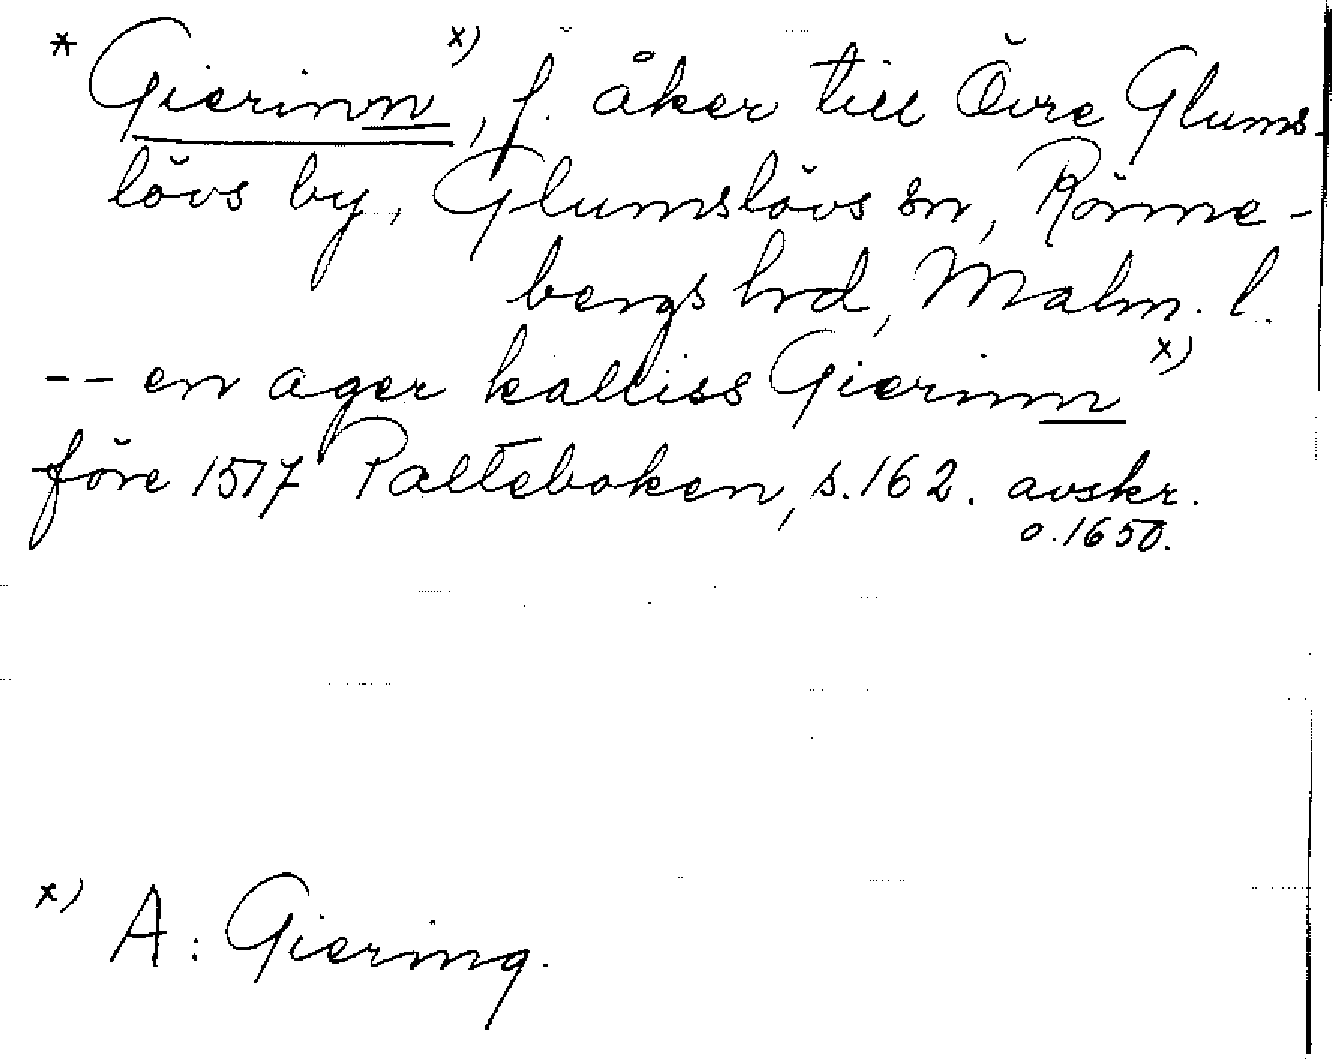 * Gierinn x), f. åker till Övre Glums-
lövs by, Glumslövs sn, Rönne-
bergs hrd, Malm. l.
-- en ager kalliss Gierinn x)
före 1517 Palteboken, s. 162. avskr.
o. 1650.
x) A: Giering.